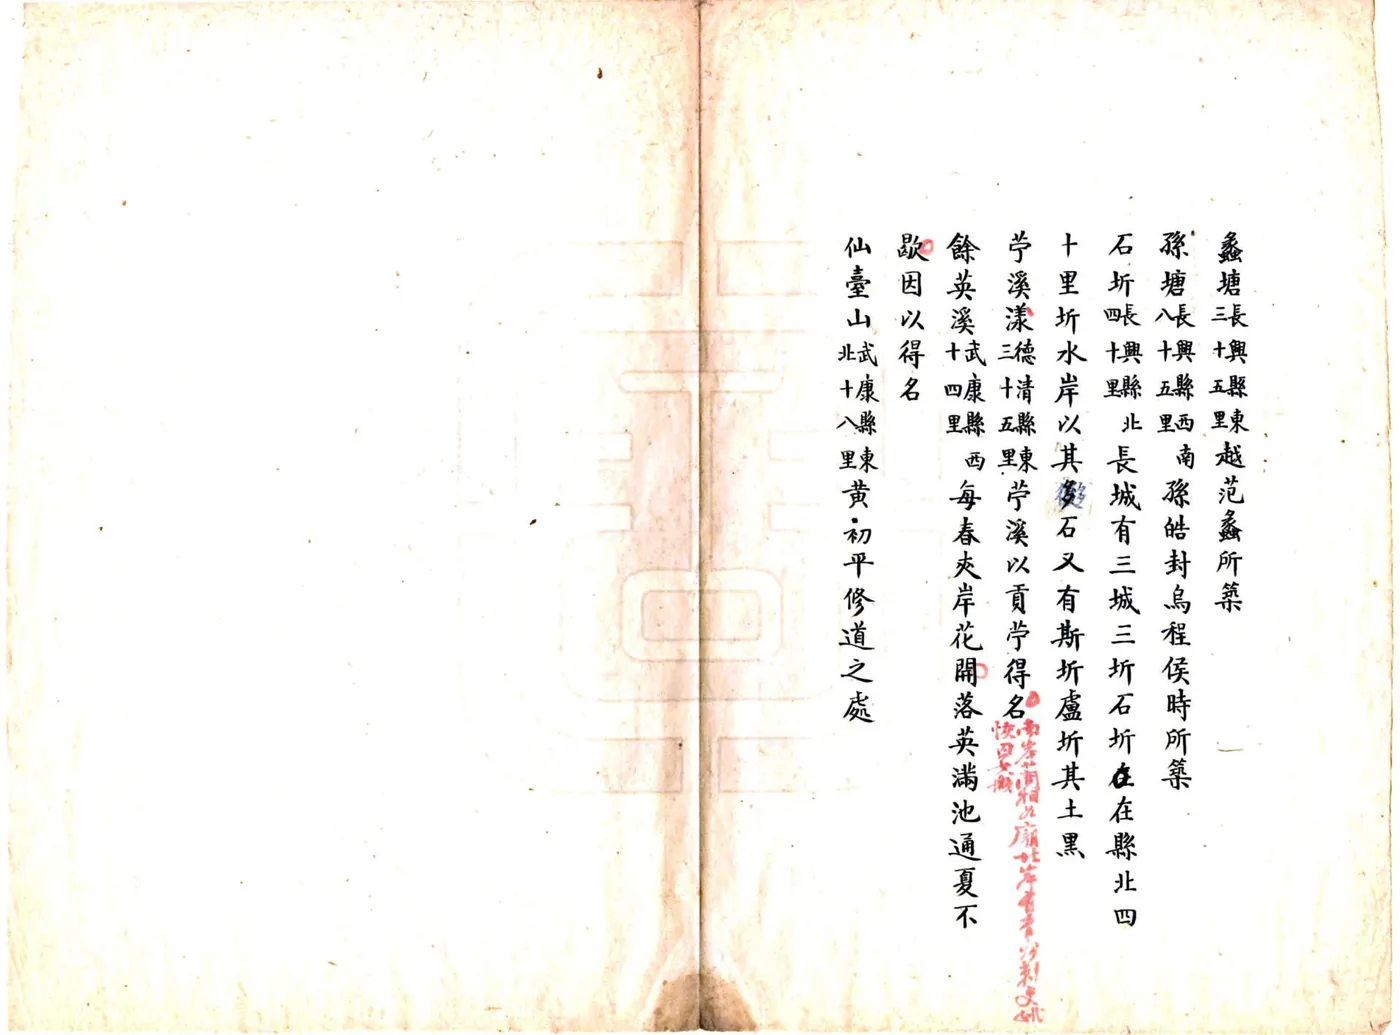 蠡塘長興縣東三十五里越范蠡所築
孫塘長興縣西南八十五里孫皓封烏程侯時所築
石圻長興縣北四十里長城有三城三圻石圻在在縣北四
十里圻水岸以其多石又有斯圻盧圻其土黑
苧溪漾德清縣東三十五里苧溪以貢苧得名
南岸藺相如廟北岸有
餘英溪武康縣西十四里每春夾岸花開落英滿池通夏不
歇因以得名
仙臺山武康縣東北十八里黃初平修道之處